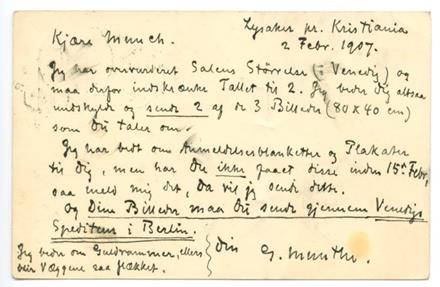 Lysaker pr. Kristiania
2 Febr. 1907.
Kjære Munch.
Jeg har overvurderet Salens Störrelse (i Venedig) og
maa derfor indskrænke Tallet til 2. Jeg beder Dig altsaa
undskylde og sende 2 af de 3 Billeder (80 x 40 cm)
som Du taler om.
Jeg har bedt om Anmeldelsesblanketter og Plakater
til Dig, men har Du ikke faaet disse inden 15de Febr,
saa meld mig det, Da vil jeg sende dette.
Og Dine Billeder maa Du sende gjennem Venedigs
Spediteur i Berlin.
Jeg beder om Guldrammer, ellers
blir Væggene saa flækket.
Din G. Munthe.